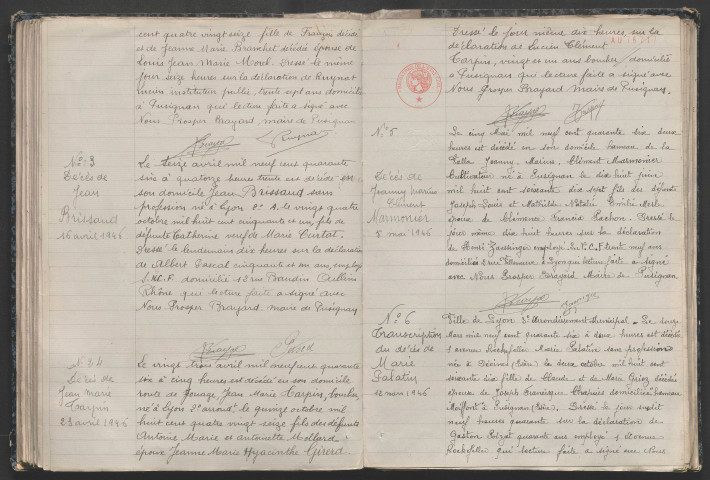 cent quatre vingt seize fille de François décédé
et de Jeanne Marie Branchet décédée épouse de
Louis Jean Marie Dressé le même
jour seize heures sur la déclaration de
Lucien instituteur public, trente sept ans domicilié
à Pusignan qui lecture faite a signé avec
Nous Prosper Brayard, maire de Pusignan
N° 3
Décès de
Jean
Brissaud
16 avril 1946
Le seize avril mil neuf cent quarante
six à quatorze heures trente est décédé en
son domicile Jean Brissaud sans
profession né à Lyon 2e A. le vingt quatre
octobre mil huit cent cinquante et un, fils de
défunte Catherine veuf de Marie Curtat.
Dressé le lendemain dix heures sur la déclaration
de Albert Pascal cinquante et un ans, employé
S.N.C.F domicilié 12 rue Baudin
Rhône qui lecture faite a signé avec
Nous Prosper Brayard, maire de Pusignan
N° 4
Décès de
Jean Marie
Carpin
23 avril 1946
Le vingt trois avril mil neuf cent quarante
six à cinq heures est décédé en son domicile
route de Jonage, Jean Marie Carpin, boucher
né à Lyon 2e arrondt le quinze octobre mil
huit cent quatre vingt seize fils des défunts
Antoine Marie et Antoinette Mollard,
époux Jeanne Marie Hyacinthe Girerd
Dressé le jour même dix heures sur la
déclaration de Lucien Clément
Carpin, vingt six ans boucher domicilié
à Pusignan qui lecture faite a signé avec
Nous Prosper Brayard maire de Pusignan.
N° 5
Décès de
Jeanny Marius
Clément
Marmonier
5 mai 1946
Le cinq Mai mil neuf cent quarante six deux
heures est décédé en son domicile hameau de la
Jeanny, Marius, Clément Marmonier
Cultivateur né à Pusignan le dix huit juin
mil huit cent soixante dix sept fils des défunts
Joseph Louis et Mathilde Natalie Emilie Merle
de Clémence Francia Pachon. Dressé le
jour même dix huit heures sur la déclaration
de employé S.N.C.F trente neuf ans
domicilié 2 rue à Lyon qui lecture faite a signé
avec Nous Prosper Brayard Maire de Pusignan
N° 6
Transcription
du décès de
Marie
Palatin
12 mars 1946
Ville de Lyon 3e Arrondissement Municipal - Le douze
Mars mil neuf cent quarante six à deux heures est décédée
1 avenue Rockefeller Marie Palatin sans profession
née à (Isère) le onze octobre mil huit cent
soixante dix fille de Claude et de Marie décédés
épouse de Joseph Françisque Chapuis domiciliée hameau
Moiffont à Pusignan (Isère). Dressé le jour susdit
neuf heures quarante sur la déclaration de
Gaston quarante ans employé 1 Avenue
Rockefeller qui lecture faite a signé avec Nous.